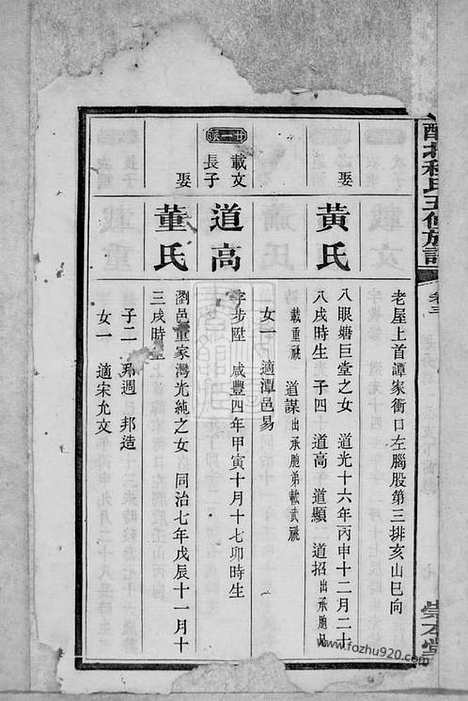 五修族譜
卷三
老屋上首譚家衝口左腦股第三排亥山巳向
娶
黃氏
八眼塘巨堂之女 道光十六年丙申十二月二十
八戌時生 子四 道高 道顯 道招出承胞兄
載重祧 道謀出承胞弟載武祧
女一 適潭邑易
廿一派
載文
長子
道高
字步陞 咸豐四年甲寅十月十七卯時生
娶
董氏
瀏邑董家灣光純之女 同治七年戊辰十一月十
三戌時生
子二 週 邦造
女一 適宋允文
www.fozhu920.com